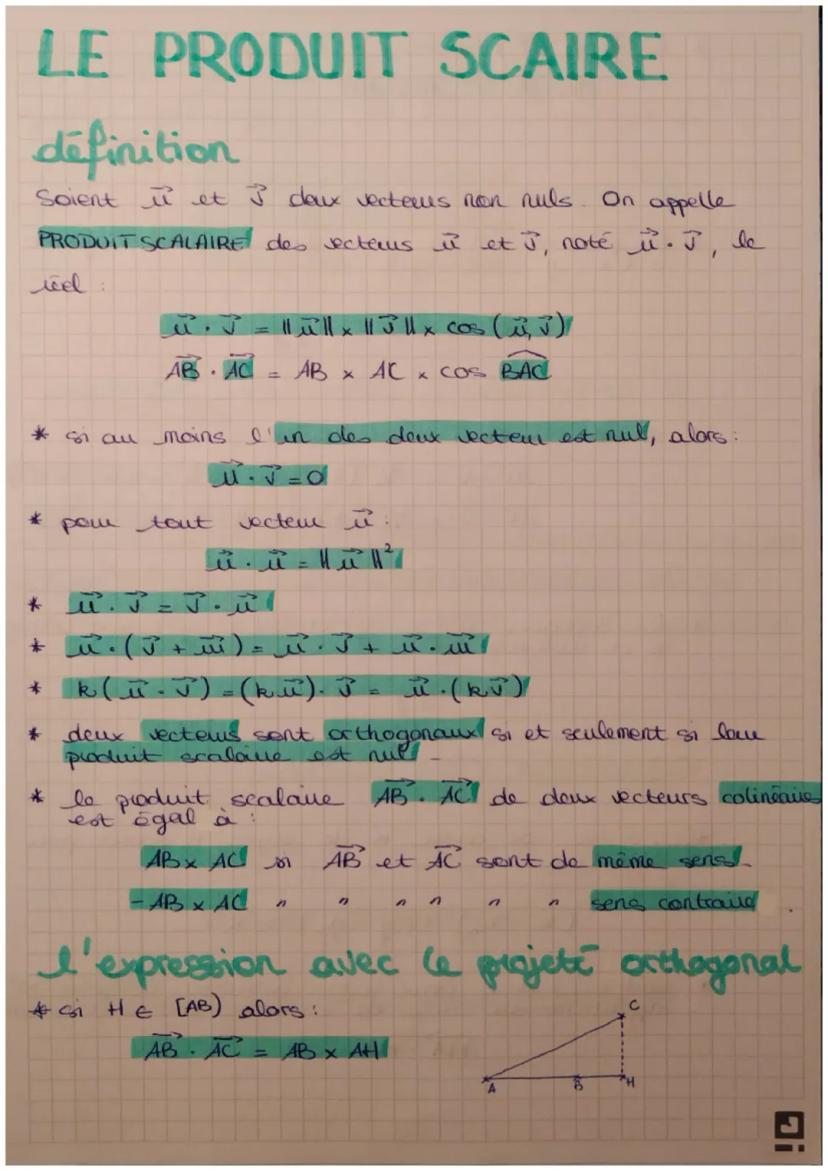 LE PRODUIT SCAIRE
définition
Soient u⃗ et v⃗ deux vecteurs non nuls. On appelle
PRODUIT SCALAIRE des vecteurs u⃗ et v⃗, noté u⃗ · v⃗, le
réel :
u⃗ · v⃗ = ||u⃗|| × ||v⃗|| × cos (u⃗, v⃗)
AB⃗ · AC⃗ = AB × AC × cos BAC
* si au moins l'un des deux vecteur est nul, alors :
u⃗ · v⃗ = 0
* pour tout vecteur u⃗ :
u⃗ · u⃗ = ||u⃗||²
* u⃗ · v⃗ = v⃗ · u⃗
* u⃗ · (v⃗ + w⃗) = u⃗ · v⃗ + u⃗ · w⃗
* k(u⃗ · v⃗) = (ku⃗) · v⃗ = u⃗ · (kv⃗)
* deux vecteurs sont orthogonaux si et seulement si leur
produit scalaire est nul.
* le produit scalaire AB⃗ · AC⃗ de deux vecteurs colinéaires
est égal à :
AB × AC si AB⃗ et AC⃗ sont de même sens.
- AB × AC " " " " " " sens contraire.
l'expression avec le projeté orthogonal
* si H ∈ [AB) alors :
AB⃗ · AC⃗ = AB × AH
C
A B H